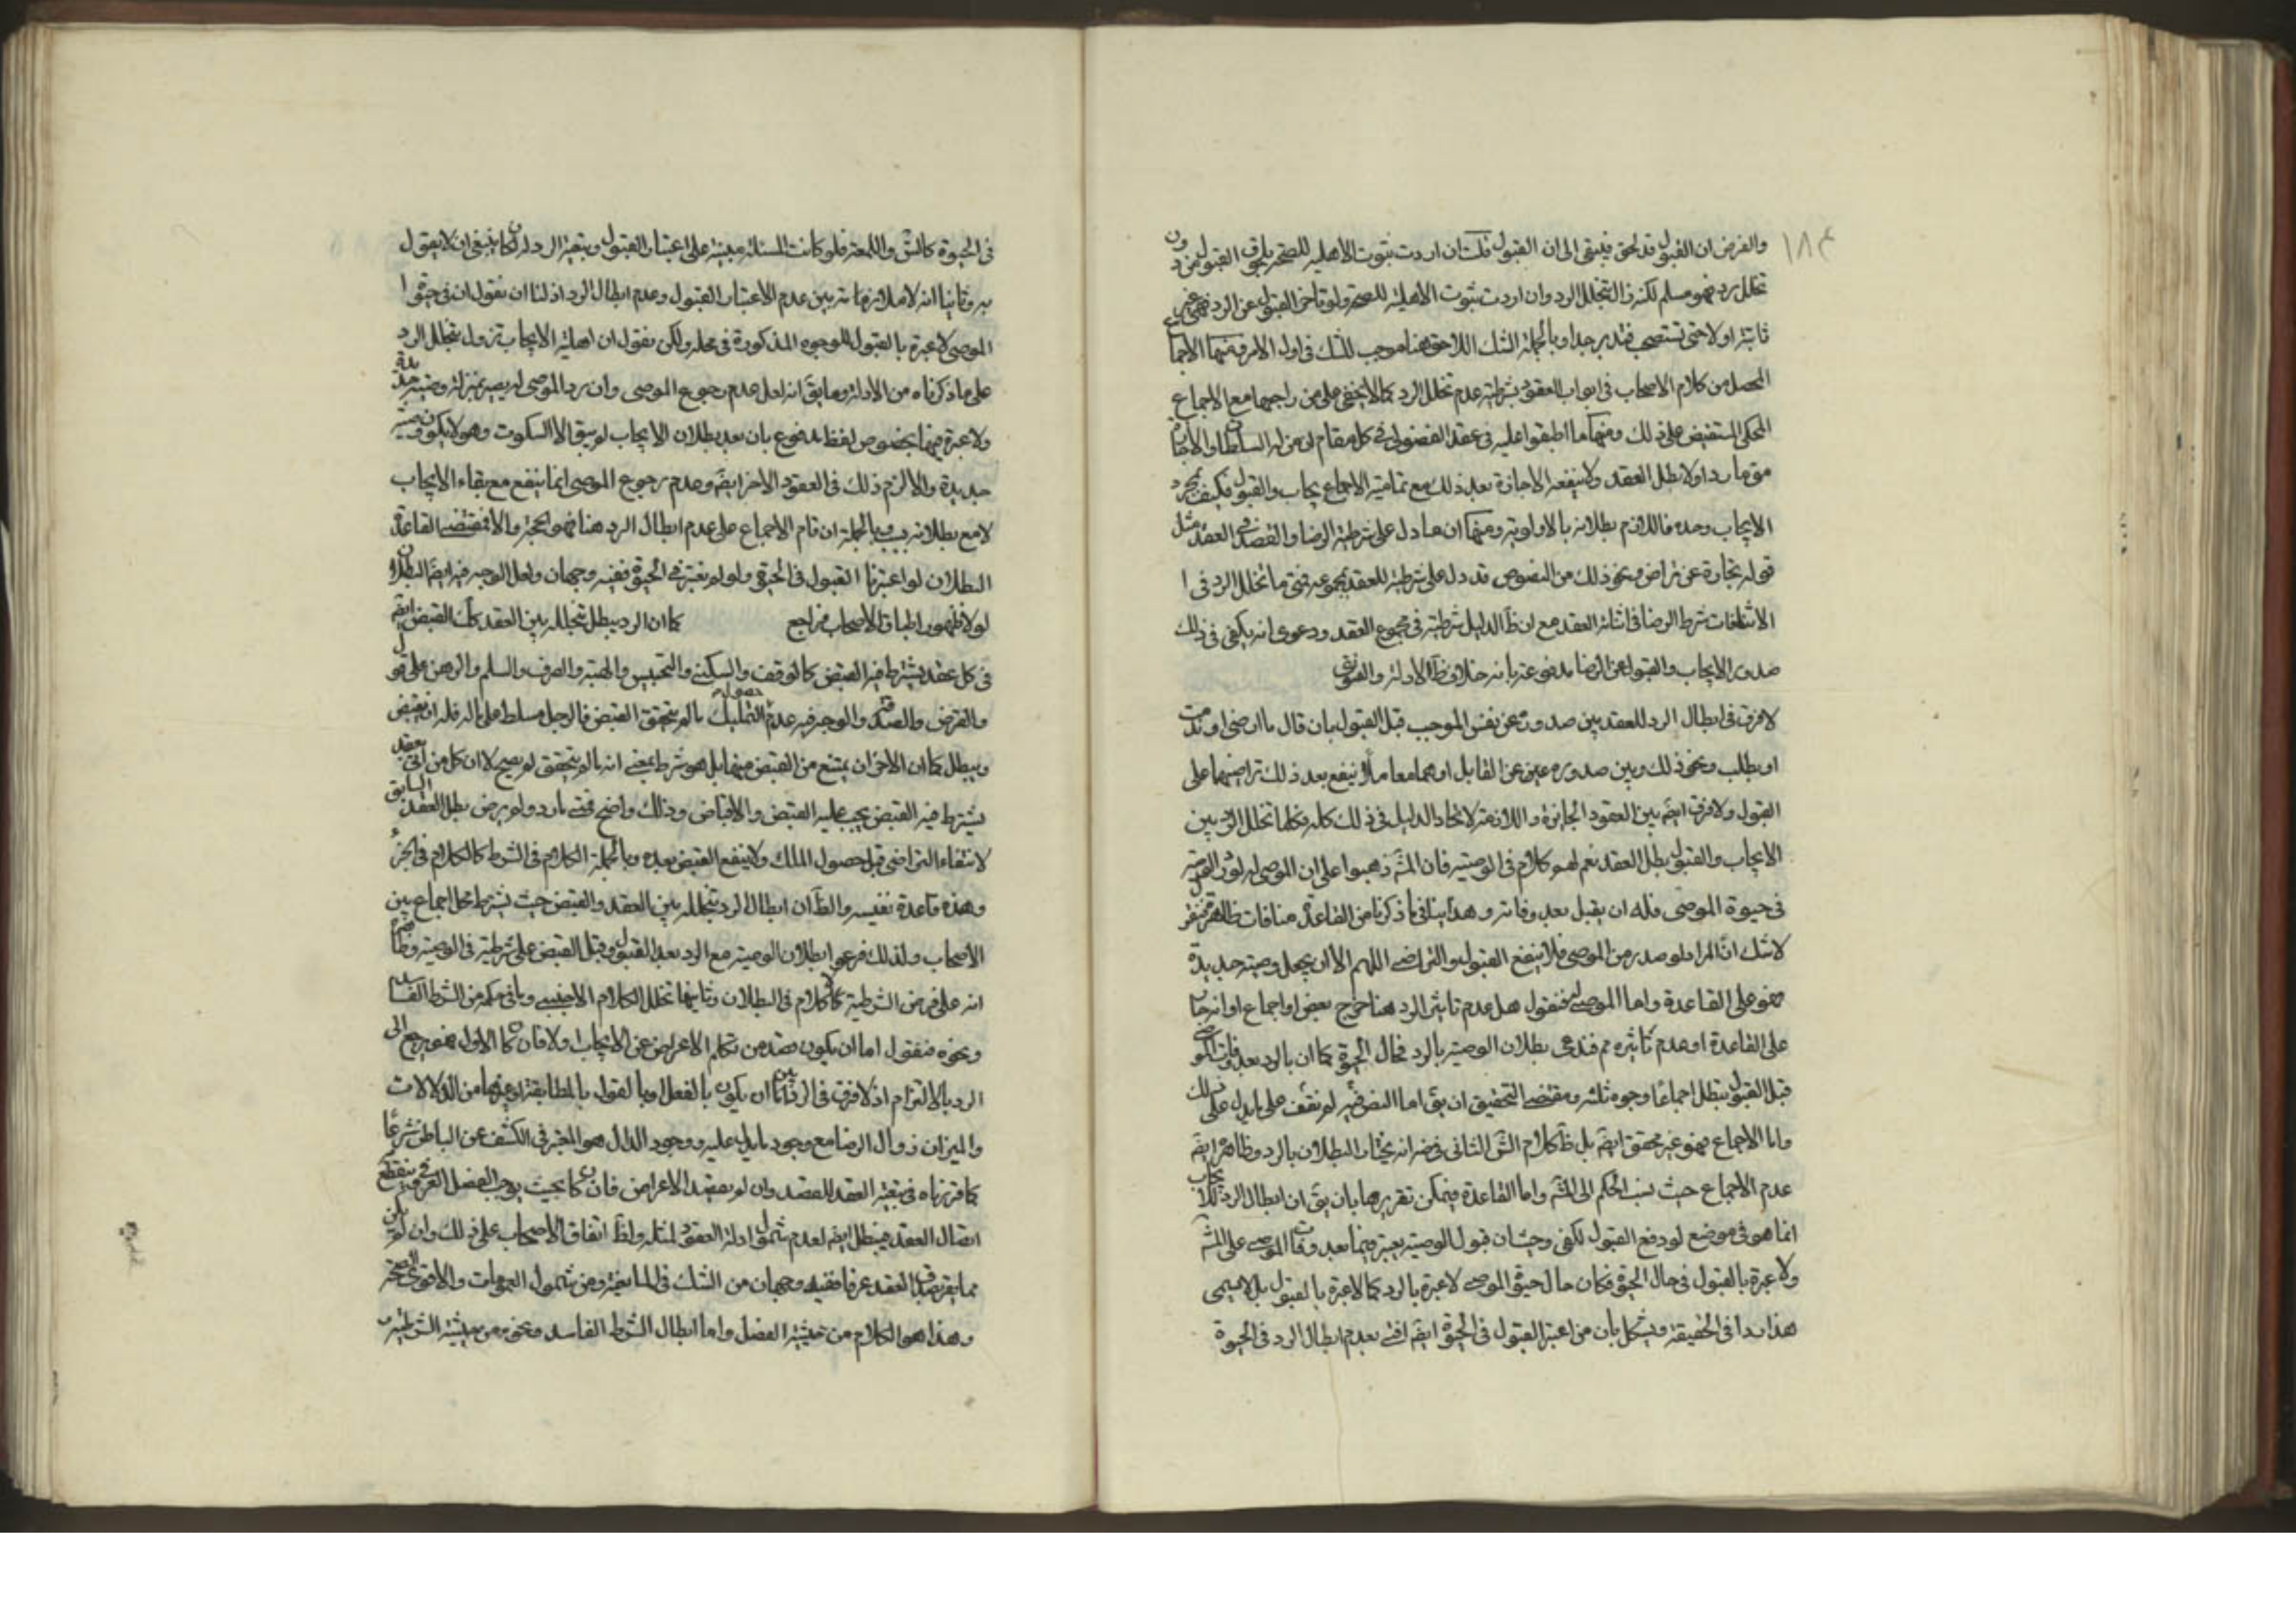 ١٨٤
والفرض ان القبول قد لحق فيبقى الى ان القبول قلت ان اردت بثبوت الاهليه للصحة بلحوق القبول من دون
تخلل رد فهو مسلم لكنه زال بتخلل الرد وان اردت ثبوت الاهلية للصحة ولو تاخر القبول عن الرد فهى غير
ثابتة اولا حتى تستصحب فتدبر جدا وبالجملة الشك اللاحق هنا موجب للشك فى اول الامر ومنها الاجماع
المحصل من كلام الاصحاب فى ابواب العقود بشرطية عدم تخلل الرد كما لا يخفى على من راجعها مع الاجماع
المحكى المستفيض على ذلك ومنها ما اطبقوا عليه فى عقد الفضولى فى كل مقام ان من له السلطان والاجازة
متى ما رد اولا بطل العقد ولا ينفعه الاجازة بعد ذلك مع تمامية الايجاب والقبول فكيف بمجرد
الايجاب وحده فاللازم بطلانه بالاولوية ومنها ان ما دل على شرطية الرضا والقصد فى العقد مثل
قوله تجارة عن تراض ونحو ذلك من النصوص قد دل على شرطيته للعقد بمجموعه فمتى ما تخلل الرد فى ا
الاثناء فات شرط الرضا فى اثناء العقد مع ان ظ الدليل شرطيته فى مجموع العقد ودعوى انه يكفى فى ذلك
صدور الايجاب والقبول عن الرضا مدفوعة بانه خلاف ظ الادلة والفتوى
لا فرق فى ابطال الرد للعقد بين صدوره عن نفس الموجب قبل القبول بان قال ما ارضى او ندمت
او بطلت ونحو ذلك وبين صدوره عن القابل او هما معا فلا ينفع بعد ذلك تراضيهما على
القبول ولا فرق ايضً بين العقود الجائزة واللازمة لاتحاد الدليل فى ذلك كله فكلما تخلل الرد بين
الايجاب والقبول بطل العقد نعم لهم كلام فى الوصية فان المشَ ذهبوا على ان الموصى له لو رد الوصية
فى حيوة الموصى فله ان يقبل بعد وفاته وهذا ينافى ما ذكرنا من القاعدة منافات ظاهرة فنقول
لا شك ان الرد لو صدر من الموصى فلا ينفع القبول والتراضى اللهم الا ان يجعل وصية جديدة
فهو على القاعدة واما الموصى له فنقول هل عدم تاثير الرد هنا خرج بنص او اجماع او انه جار
على القاعدة او عدم تاثيره مم فندعى بطلان الوصية بالرد فى حال الحيوة كما ان بالرد بعد وفات الموصى
قبل القبول يبطل اجماعًا وجوه ثلثة ومقتضى التحقيق ان يقَ اما النص فى لم نقف على ما يدل على ذلك
واما الاجماع فهو غير محقق ايضً بل ظَ كلام الشَ الثانى فى ضه انه يختار البطلان بالرد وظاهره ايضً
عدم الاجماع حيث نسب الحكم الى المشَ واما القاعدة فيمكن تقريرها بان يقَ ان ابطال الرد للايجاب
انما هو فى موضع لو دفع القبول لكفى وحيث ان قبول الوصية يعتبر فيما بعد وفات الموصى على المشَ
ولا عبرة بالقبول فى حال الحيوة فكان حال حيوة الموصى لا عبرة بالرد كما لا عبرة بالقبول بل لا يسمى
هذا ردا فى الحقيقة ويشكل بان من اعتبر القبول فى الحيوة ايضً افتى بعدم ابطال الرد فى الحيوة
فى الحيوة كالشَ واللمعة فلو كانت المسئلة مبنية على اعتبار القبول وبتعية الرد له لكان ينبغى ان لا يقول
به وثانيا انه لا ملازمة بين عدم الاعتبار القبول وعدم ابطال الرد اذ لنا ان نقول ان فى حيوة ا
الموصى لا عبرة بالقبول للوجوه المذكورة فى محله ولكن نقول ان اهلية الايجاب تزول بتخلل الرد
على ما ذكرناه من الادلة وما يقَ انه لعل عدم رجوع الموصى وان رد الموصى له يصير بمنزلة وصية جديدة
ولا عبرة فيها بخصوص لفظ مدفوع بان بعد بطلان الايجاب لم يبق الا السكوت وهو لا يكون وصية
جديدة والا لزم ذلك فى العقود الاخر ايضً وعدم رجوع الموصى انما ينفع مع بقاء الايجاب
لا مع بطلانه وبالجملة ان قام الاجماع على عدم ابطال الرد هنا فهو الحجة والا فمقتضى القاعدة
البطلان لو اعتبرنا القبول فى الحيوة ولو لم نعتبر فى الحيوة ففيه وجهان ولعل الوجه فيه ايضً البطلان
لولا ظهور اطباق الاصحاب فراجع كما ان الرد يبطل بتخلله بين العقد كك القبض ايضً
فى كل عقد يشترط فيه القبض كالوقف والسكنى والتحبيس والهبة والصرف والسلم والرهن على قول
والقرض والصدقة والوجه فيه عدم حصول التمليك ما لم يتحقق القبض فالرجل مسلط على ماله فله ان يقبض
ويبطل كما ان الاخر ان يمتنع من القبض فيها بل هو شرط بمعنى انه ما لم يتحقق لم يصح لا ان كل من اتى بعقد
يشترط فيه القبض يجب عليه القبض والاقباض وذلك واضح فمتى ما رد ولم يرض بطل العقد السابق
لانتفاء التراضى قبل حصول الملك ولا ينفع القبض بعده وبالجملة الكلام فى الشرط كالكلام فى الجزء
وهذه قاعدة نفيسه والظَ ان ابطال الرد بتخلله بين العقد والقبض حيث يشترط محل اجماع بين
الاصحاب ولذلك فرعوا بطلان الوصية مع الرد بعد القبول وقبل القبض على شرطيته فى الوصية وظاهرهم
انه على فرض الشرطية لا كلام فى البطلان وثانيها تخلل الكلام الاجنبى وياتى حكمه من الشرط الفاسد
ونحوه فنقول اما ان يكون قصد من تكلم الاعراض عن الايجاب اولا فان كان الاول فهو يرجع الى
الرد بالالتزام اذ لا فرق فى الرد بين ان يكون بالفعل او بالقول بالمطابقة او غيرها من الدلالات
والميزان زوال الرضا مع وجود ما يدل عليه ووجود الدال هو المعتبر فى الكشف عن الباطن شرعًا
كما قررناه فى تبعية العقد للقصد وان لم يقصد الاعراض فان كان بحيث يوجب الفصل العرفى فينقطع
اتصال العقد فيبطل ايضً لعدم شمول ادلة العقود لمثله ولظَ اتفاق الاصحاب على ذلك وان لم يكن
مما يضر بصدق العقد عرفا ففيه وجهان من الشك فى المانعية ومن شمول العمومات والاقوى الصحة
وهذا هو الكلام من حيثية الفصل واما ابطال الشرط الفاسد ونحوه من حيثية الشرطية